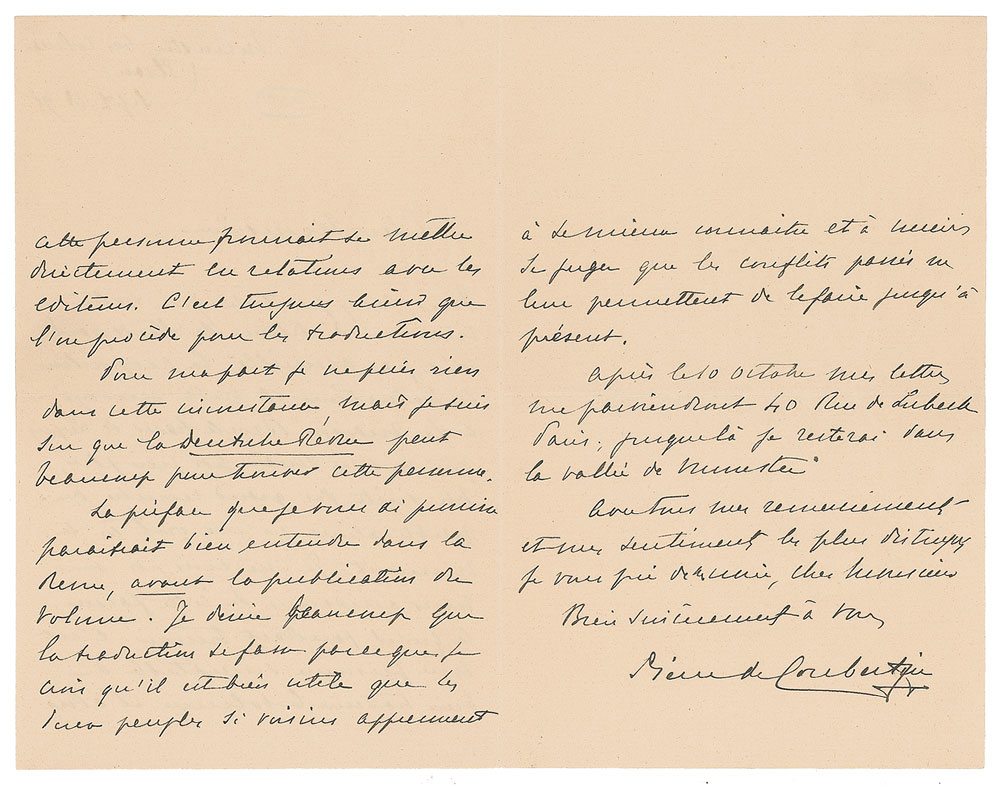 cette personne pourrait se mettre
directement en relations avec les
editeurs. C'est toujours ainsi que
l'on procède pour les traductions.
Pour ma part je ne puis rien
dans cette circonstance, mais je suis
sur que la Deutsche Révue peut
beaucoup pour trouver cette personne.
La préface que je vous ai promise
paraitrait bien entendu dans la
Revue, avant la publication du
volume. Je désire beaucoup que
la traduction se fasse parce que je
crois qu'il est bien utile que les
deux peuples si voisins apprennent
à se mieux connaitre et à mieux
se juger que les conflits passés ne
leur permettent de le faire jusqu'à
présent.
Après le 10 octobre mes lettres
me parviendront 20 Rue de Lubeck
Paris; jusque là je resterai dans
la vallée de Munster
Avec tous mes remerciements
et mes sentiments les plus distingués
je vous prie de me croire, cher Monsieur
Bien sincèrement à vous
Pierre de Coubertin